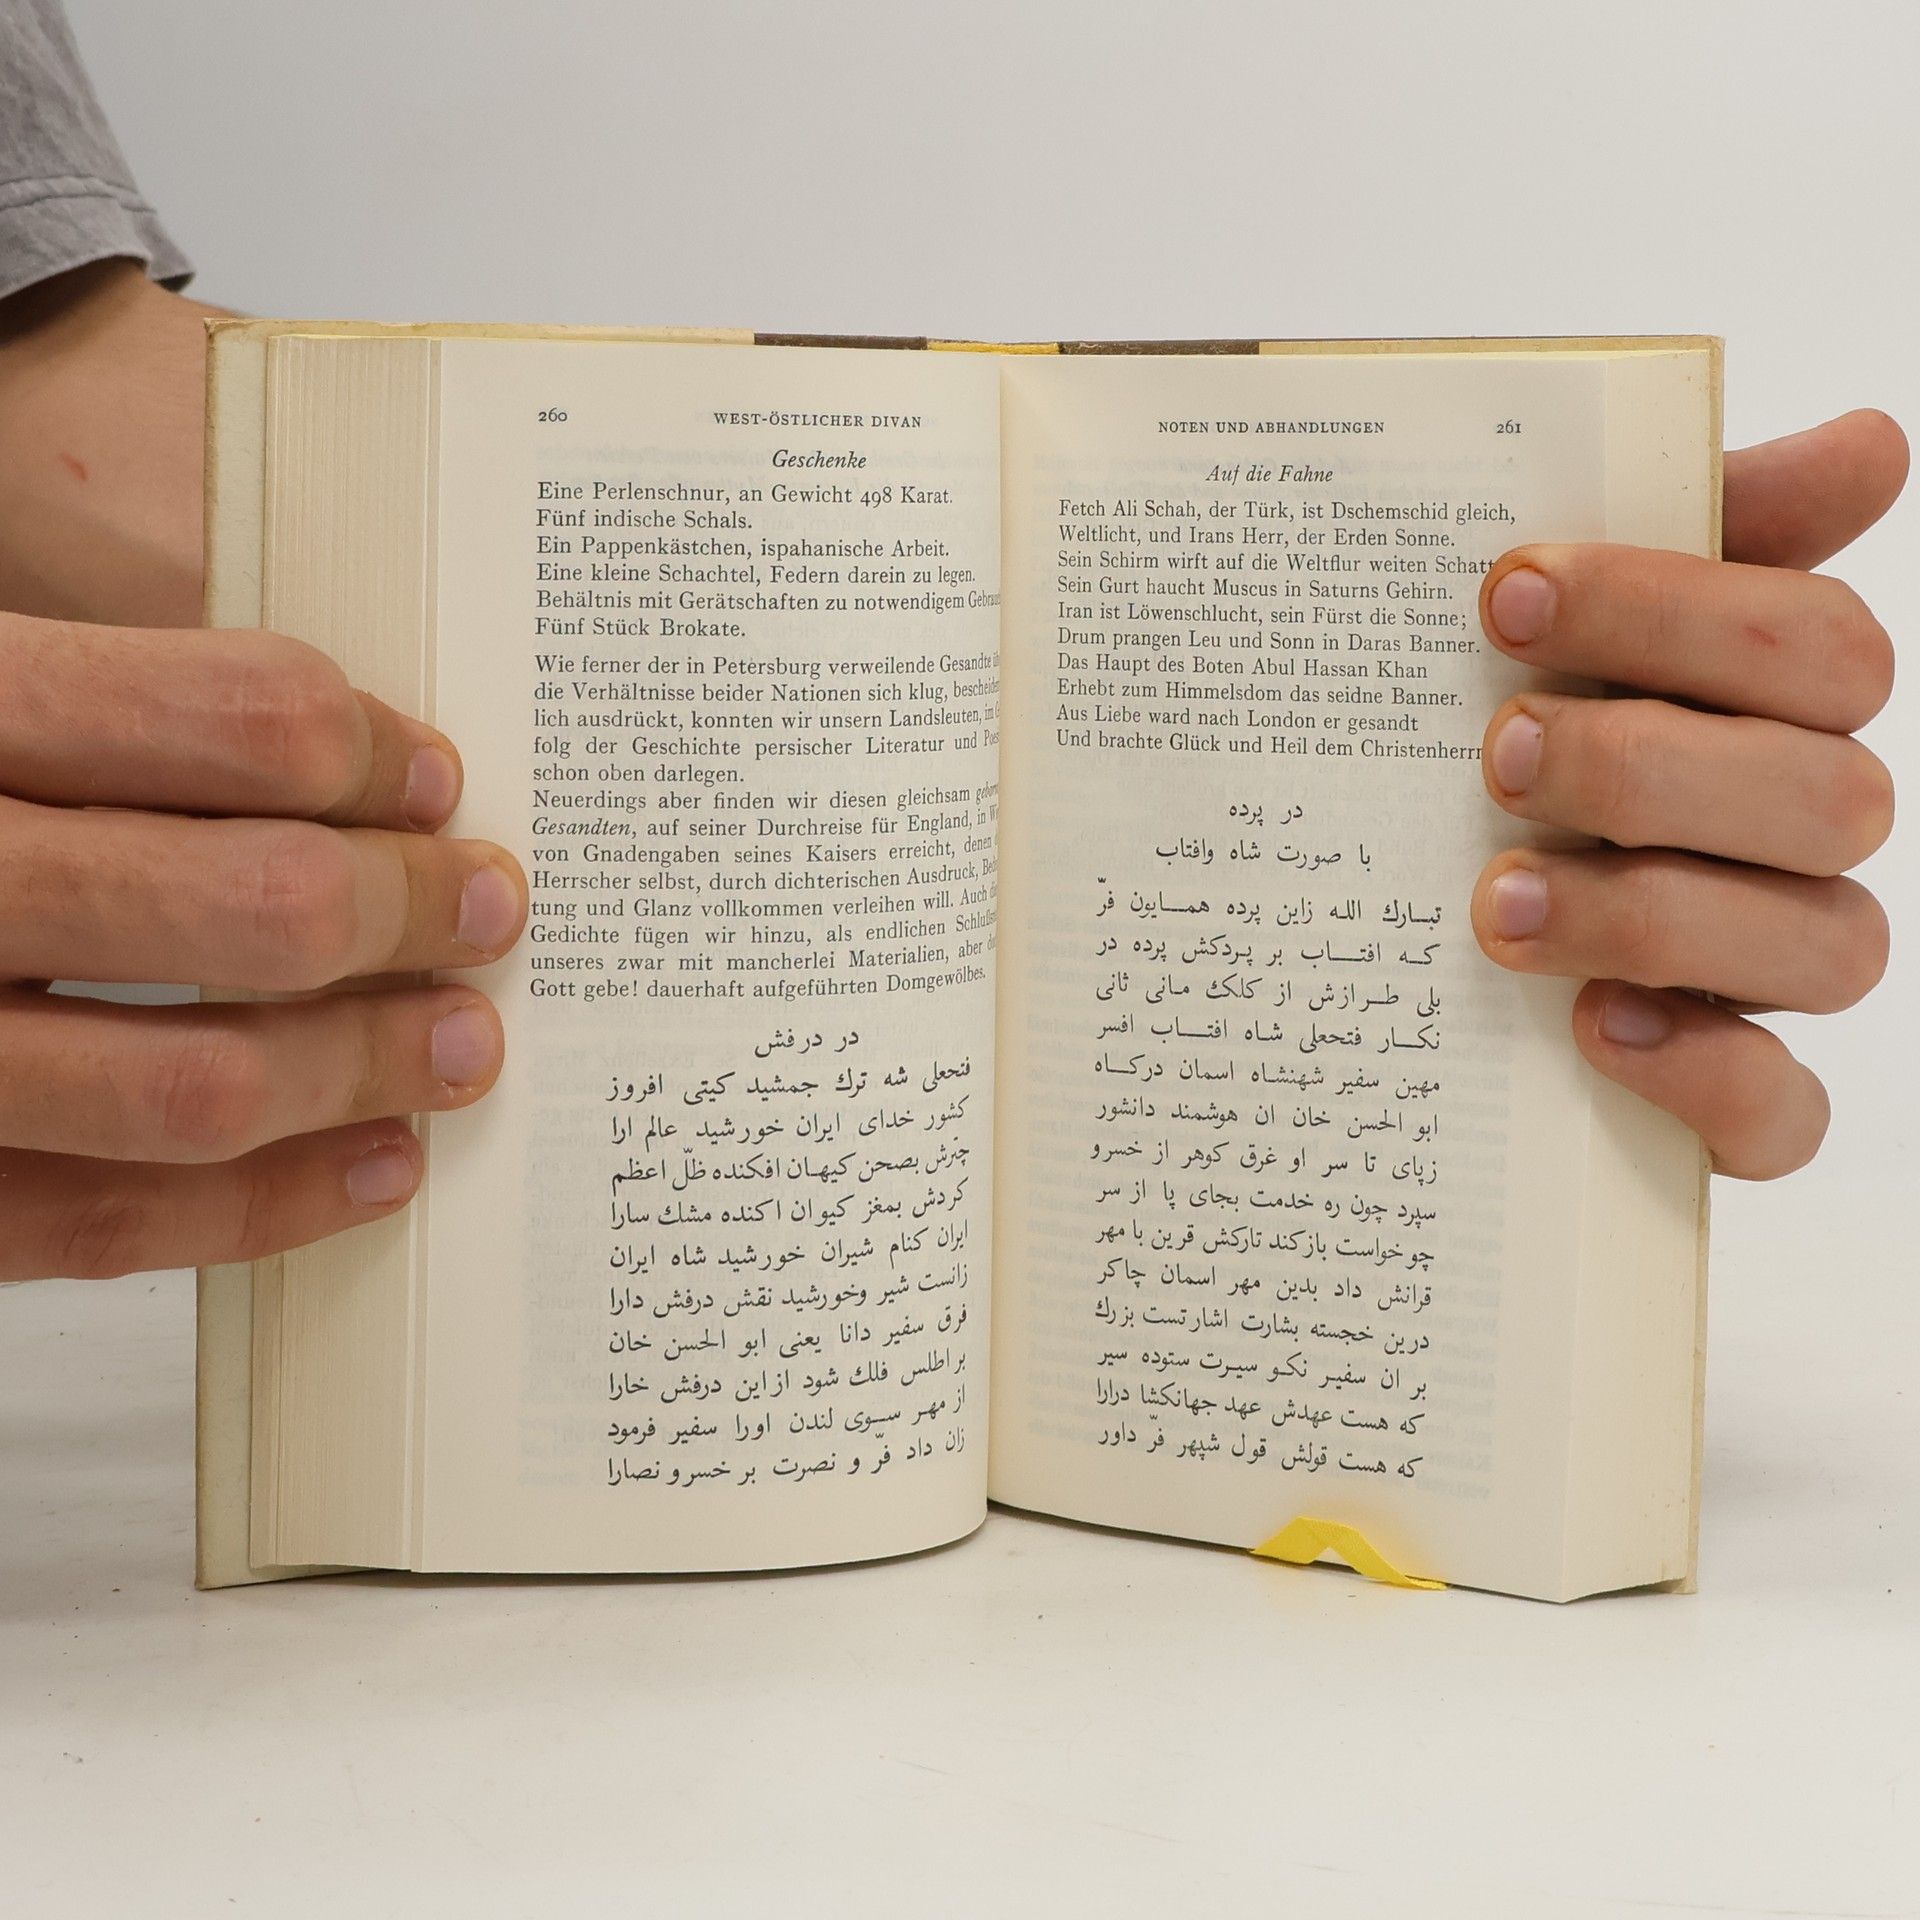 260 WEST-ÖSTLICHER DIVAN
Geschenke
Eine Perlenschnur, an Gewicht 498 Karat.
Fünf indische Schals.
Ein Pappenkästchen, ispahanische Arbeit.
Eine kleine Schachtel, Federn darein zu legen.
Behältnis mit Gerätschaften zu notwendigem
Fünf Stück Brokate.
Wie ferner der in Petersburg verweilende Gesandte
die Verhältnisse beider Nationen sich klug,
lich ausdrückt, konnten wir unsern Landsleuten,
folg der Geschichte persischer Literatur und
schon oben darlegen.
Neuerdings aber finden wir diesen gleichsam
Gesandten, auf seiner Durchreise für England, in
von Gnadengaben seines Kaisers erreicht, denen
Herrscher selbst, durch dichterischen Ausdruck,
tung und Glanz vollkommen verleihen will. Auch
Gedichte fügen wir hinzu, als endlichen
unseres zwar mit mancherlei Materialien, aber
Gott gebe! dauerhaft aufgeführten Domgewölbes.
در درفش
فتحعلی شه ترك جمشید کیتی افروز
کشور خدای ایران خورشید عالم ارا
چترش بصحن کیهان افکنده ظلّ اعظم
کردش بمغز کیوان اکنده مشك سارا
ایران کنام شیران خورشید شاه ایران
زانست شیر وخورشید نقش درفش دارا
فرق سفیر دانا یعنی ابو الحسن خان
بر اطلس فلك شود از این درفش خارا
از مهر سوی لندن اورا سفیر فرمود
زان داد فرّ و نصرت بر خسرو نصارا
NOTEN UND ABHANDLUNGEN 261
Auf die Fahne
Fetch Ali Schah, der Türk, ist Dschemschid gleich,
Weltlicht, und Irans Herr, der Erden Sonne.
Sein Schirm wirft auf die Weltflur weiten
Sein Gurt haucht Muscus in Saturns Gehirn.
Iran ist Löwenschlucht, sein Fürst die Sonne;
Drum prangen Leu und Sonn in Daras Banner.
Das Haupt des Boten Abul Hassan Khan
Erhebt zum Himmelsdom das seidne Banner.
Aus Liebe ward nach London er gesandt
Und brachte Glück und Heil dem Christenherrn
در پرده
با صورت شاه وافتاب
تبارك الله زاین پرده همایون فرّ
که افتاب بر پردکش پرده در
بلی طرازش از کلك مانی ثانی
نکار فتحعلی شاه افتاب افسر
مهین سفیر شهنشاه اسمان درکاه
ابو الحسن خان ان هوشمند دانشور
زپای تا سر او غرق کوهر از خسرو
سپرد چون ره خدمت بجای پا از سر
چو خواست بازکند تارکش قرین با مهر
قرانش داد بدین مهر اسمان چاکر
درین خجسته بشارت اشارتست بزرك
بر ان سفیر نکو سیرت ستوده سیر
که هست عهدش عهد جهانکشا دارا
که هست قولش قول شپهر فرّ داور